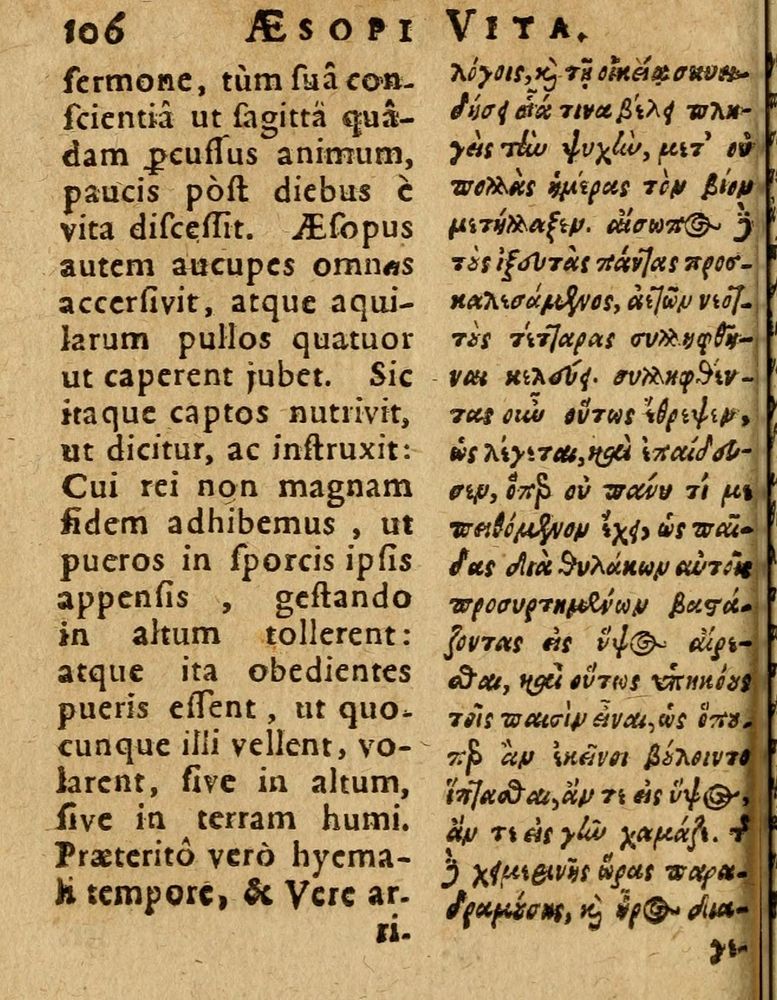 106 ÆSOPI VITA.
sermone, tùm suâ con-
scientiâ ut sagittâ quâ-
dam ꝑcussus animum,
paucis pòst diebus è
vita discessit. Æsopus
autem aucupes omnes
accersivit, atque aqui-
larum pullos quatuor
ut caperent jubet. Sic
itaque captos nutrivit,
ut dicitur, ac instruxit:
Cui rei non magnam
fidem adhibemus, ut
pueros in sporcis ipsis
appensis, gestando
in altum tollerent:
atque ita obedientes
pueris essent, ut quo-
cunque illi vellent, vo-
larent, sive in altum,
sive in terram humi.
Præteritô verò hyema-
li tempore, & Vere ar-
ri-
λόγοις, καὶ τῇ οἰκείᾳ συνει-
δήσει οἷά τινα βέλει πλη-
γεὶς τὴν ψυχὴν, μετ' οὐ
πολλὰς ἡμέρας τὸν βίον
μετήλλαξεν. αἴσωπος δὲ
τοὺς ἰξευτὰς πάντας προσ-
καλεσάμενος, ἀετῶν νεοτ-
τοὺς τέτταρας συλληφθῆ-
ναι κελεύει. συλληφθέν-
τας οὖν οὕτως ἔθρεψεν,
ὡς λέγεται, καὶ ἐπαίδευ-
σεν, ὅπερ οὐ πάνυ τί με
πειθόμενον ἔχει, ὡς παῖ-
δας διὰ θυλάκων αὐτοῖς
προσηρτημένων βαστά-
ζοντας εἰς ὕψος αἴρε-
σθαι, καὶ οὕτως ὑπηκόους
τοῖς παισὶν εἶναι, ὡς ὅπου-
περ ἂν ἐκεῖνοι βούλοιντο
ἵπτασθαι, ἄν τε εἰς ὕψος,
ἄν τε εἰς γῆν χαμάζε.
δὲ χειμερινῆς ὥρας παρα-
δραμούσης, καὶ ἦρος δια-
γε-